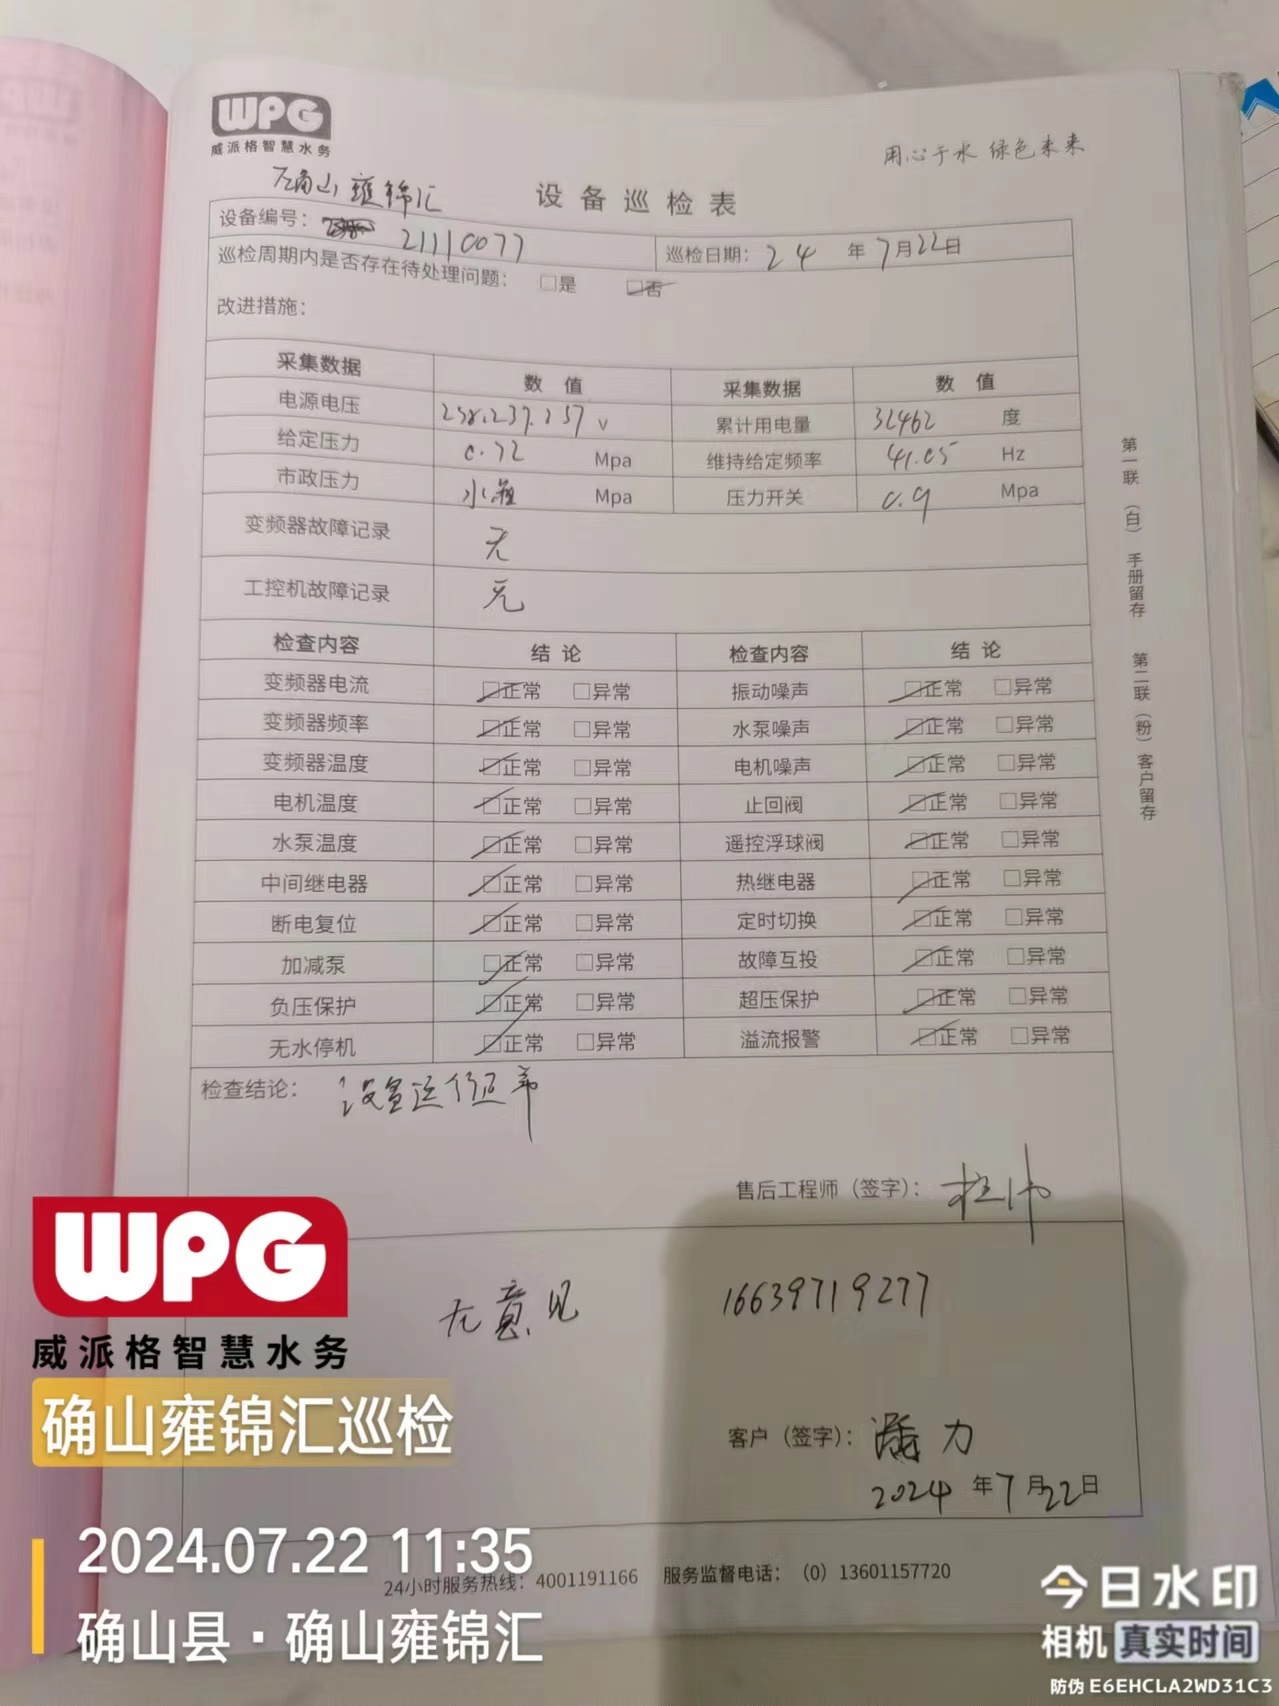 WPG
威派格智慧水务
用心于水 绿色未来
确山雍锦汇
设备巡检表
设备编号: 21110077 巡检日期: 24 年 7月22日
巡检周期内是否存在待处理问题: □是 ☑否
改进措施:
采集数据 数 值 采集数据 数 值
电源电压 238.237.237 V 累计用电量 32462 度
给定压力 0.72 Mpa 维持给定频率 41.05 Hz
市政压力 水箱 Mpa 压力开关 0.9 Mpa
变频器故障记录 无
工控机故障记录 无
检查内容 结 论 检查内容 结 论
变频器电流 ☑正常 □异常 振动噪声 ☑正常 □异常
变频器频率 ☑正常 □异常 水泵噪声 ☑正常 □异常
变频器温度 ☑正常 □异常 电机噪声 ☑正常 □异常
电机温度 ☑正常 □异常 止回阀 ☑正常 □异常
水泵温度 ☑正常 □异常 遥控浮球阀 ☑正常 □异常
中间继电器 ☑正常 □异常 热继电器 ☑正常 □异常
断电复位 ☑正常 □异常 定时切换 ☑正常 □异常
加减泵 ☑正常 □异常 故障互投 ☑正常 □异常
负压保护 ☑正常 □异常 超压保护 ☑正常 □异常
无水停机 ☑正常 □异常 溢流报警 ☑正常 □异常
检查结论: 设备运行正常
售后工程师（签字）:
无意见 16639719277
客户（签字）: 力
2024 年7月22日
24小时服务热线: 4001191166 服务监督电话:（0）13601157720
第一联（白）手册留存 第二联（粉）客户留存
WPG
威派格智慧水务
确山雍锦汇巡检
2024.07.22 11:35
确山县·确山雍锦汇
今日水印
相机 真实时间
防伪 E6EHCLA2WD31C3